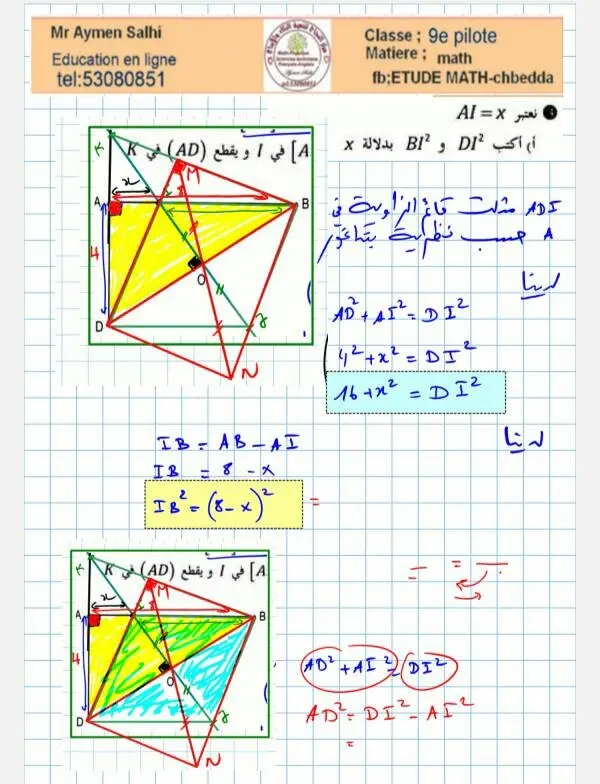 Mr Aymen Salhi
Education en ligne
tel:53080851
Classe ; 9e pilote
Matiere ; math
fb;ETUDE MATH-chbedda
نعتبر AI = x
أ) أكتب DI² و BI² بدلالة x
A] في I و يقطع (AD) في K
K
x
M
A
B
4
8
O
D
N
ADI مثلث قائم الزاوية في
A حسب نظرية بيتاغور
لدينا
AD² + AI² = DI²
4² + x² = DI²
16 + x² = DI²
لدينا
IB = AB - AI
IB = 8 - x
IB² = (8 - x)²
=
A] في I و يقطع (AD) في K
K
x
M
A
B
4
8
O
D
N
AD² + AI² = DI²
AD² = DI² - AI²
=